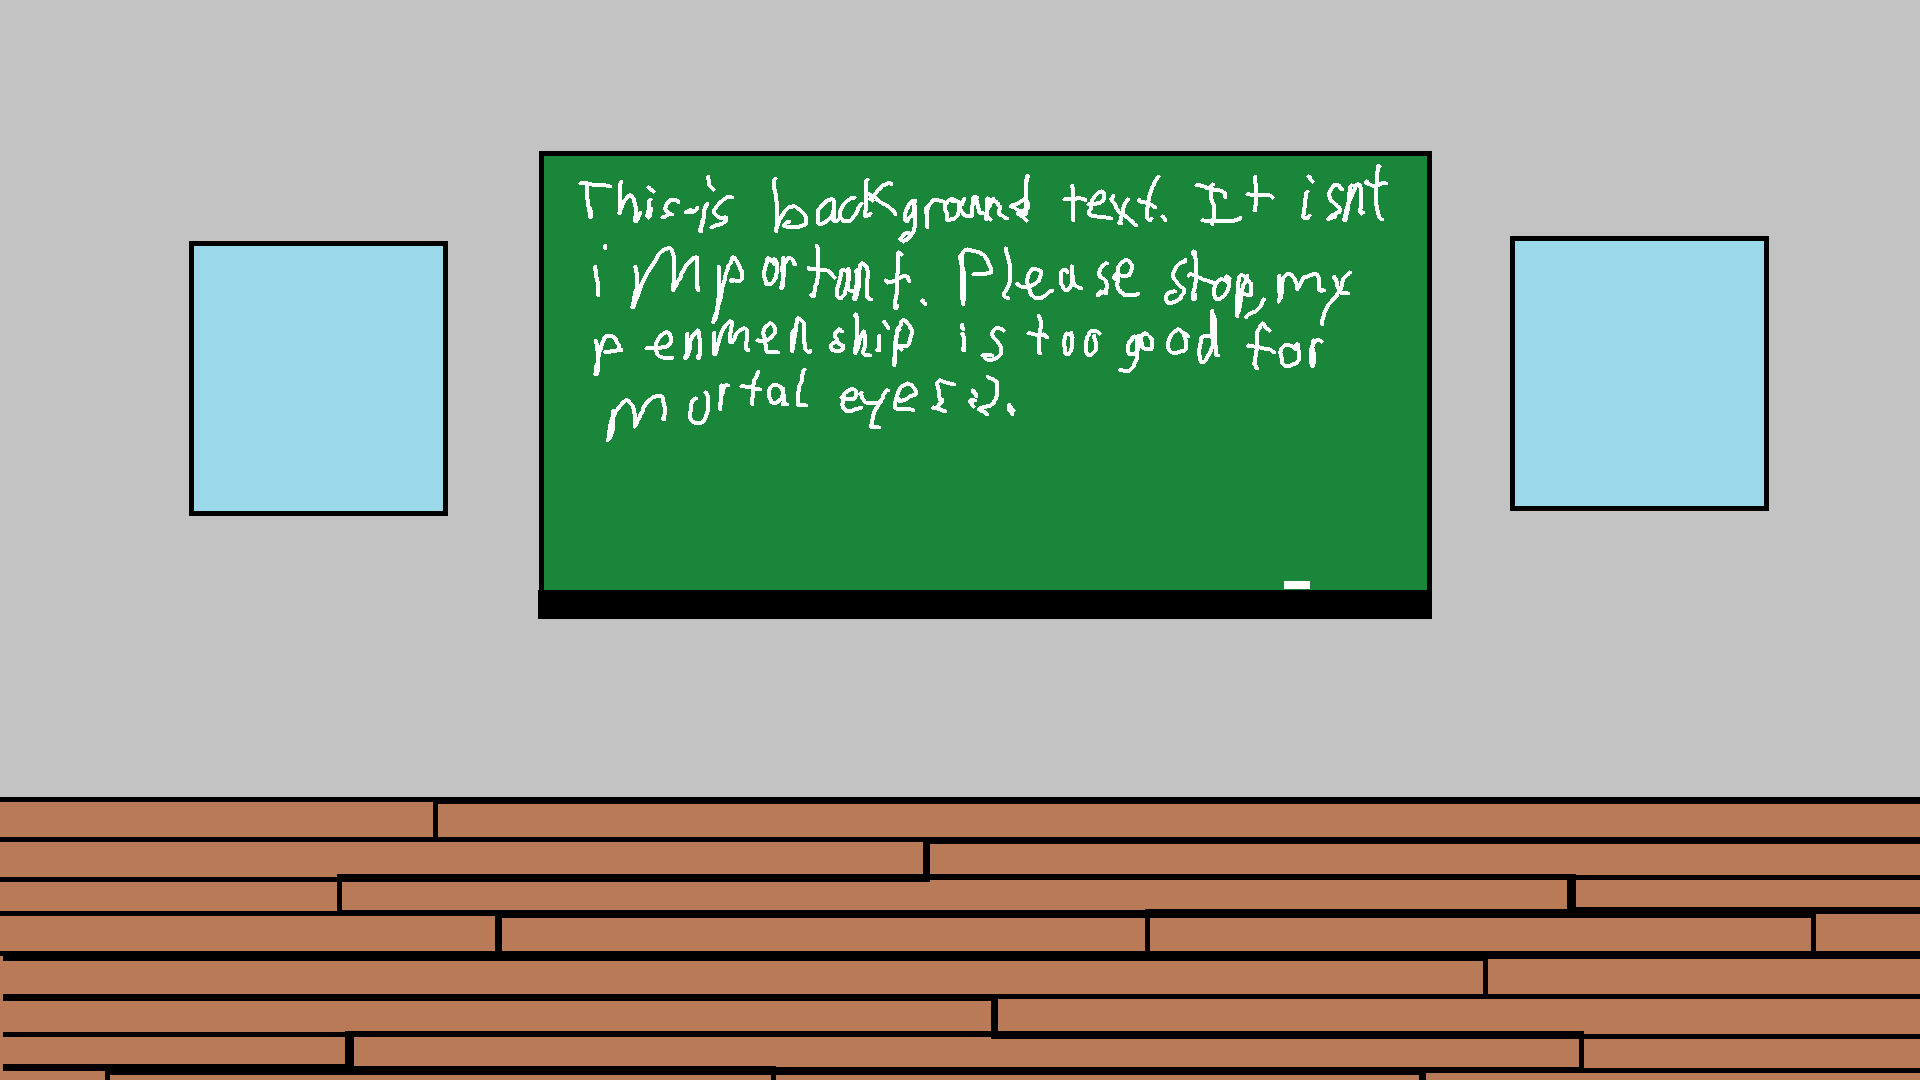 This is background text. It isnt
important. Please stop, my
penmenship is too good for
mortal eyes